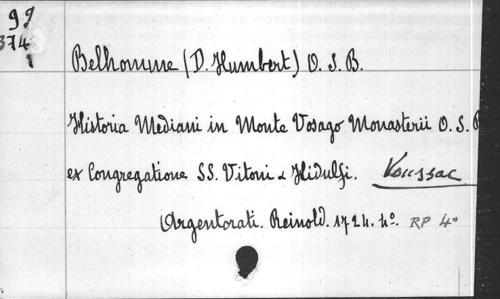 99
374
Belhomme (D. Humbert) O. S. B.
Historia Mediani in Monte Vosago Monasterii O. S. B
ex Congregatione SS. Vitoni & Hidulfi. Voussac
Argentorati. Reinold. 1724. 4º. RP 4º